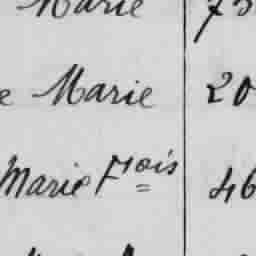 Marie 73
e Marie 20
Marie Fçois 46